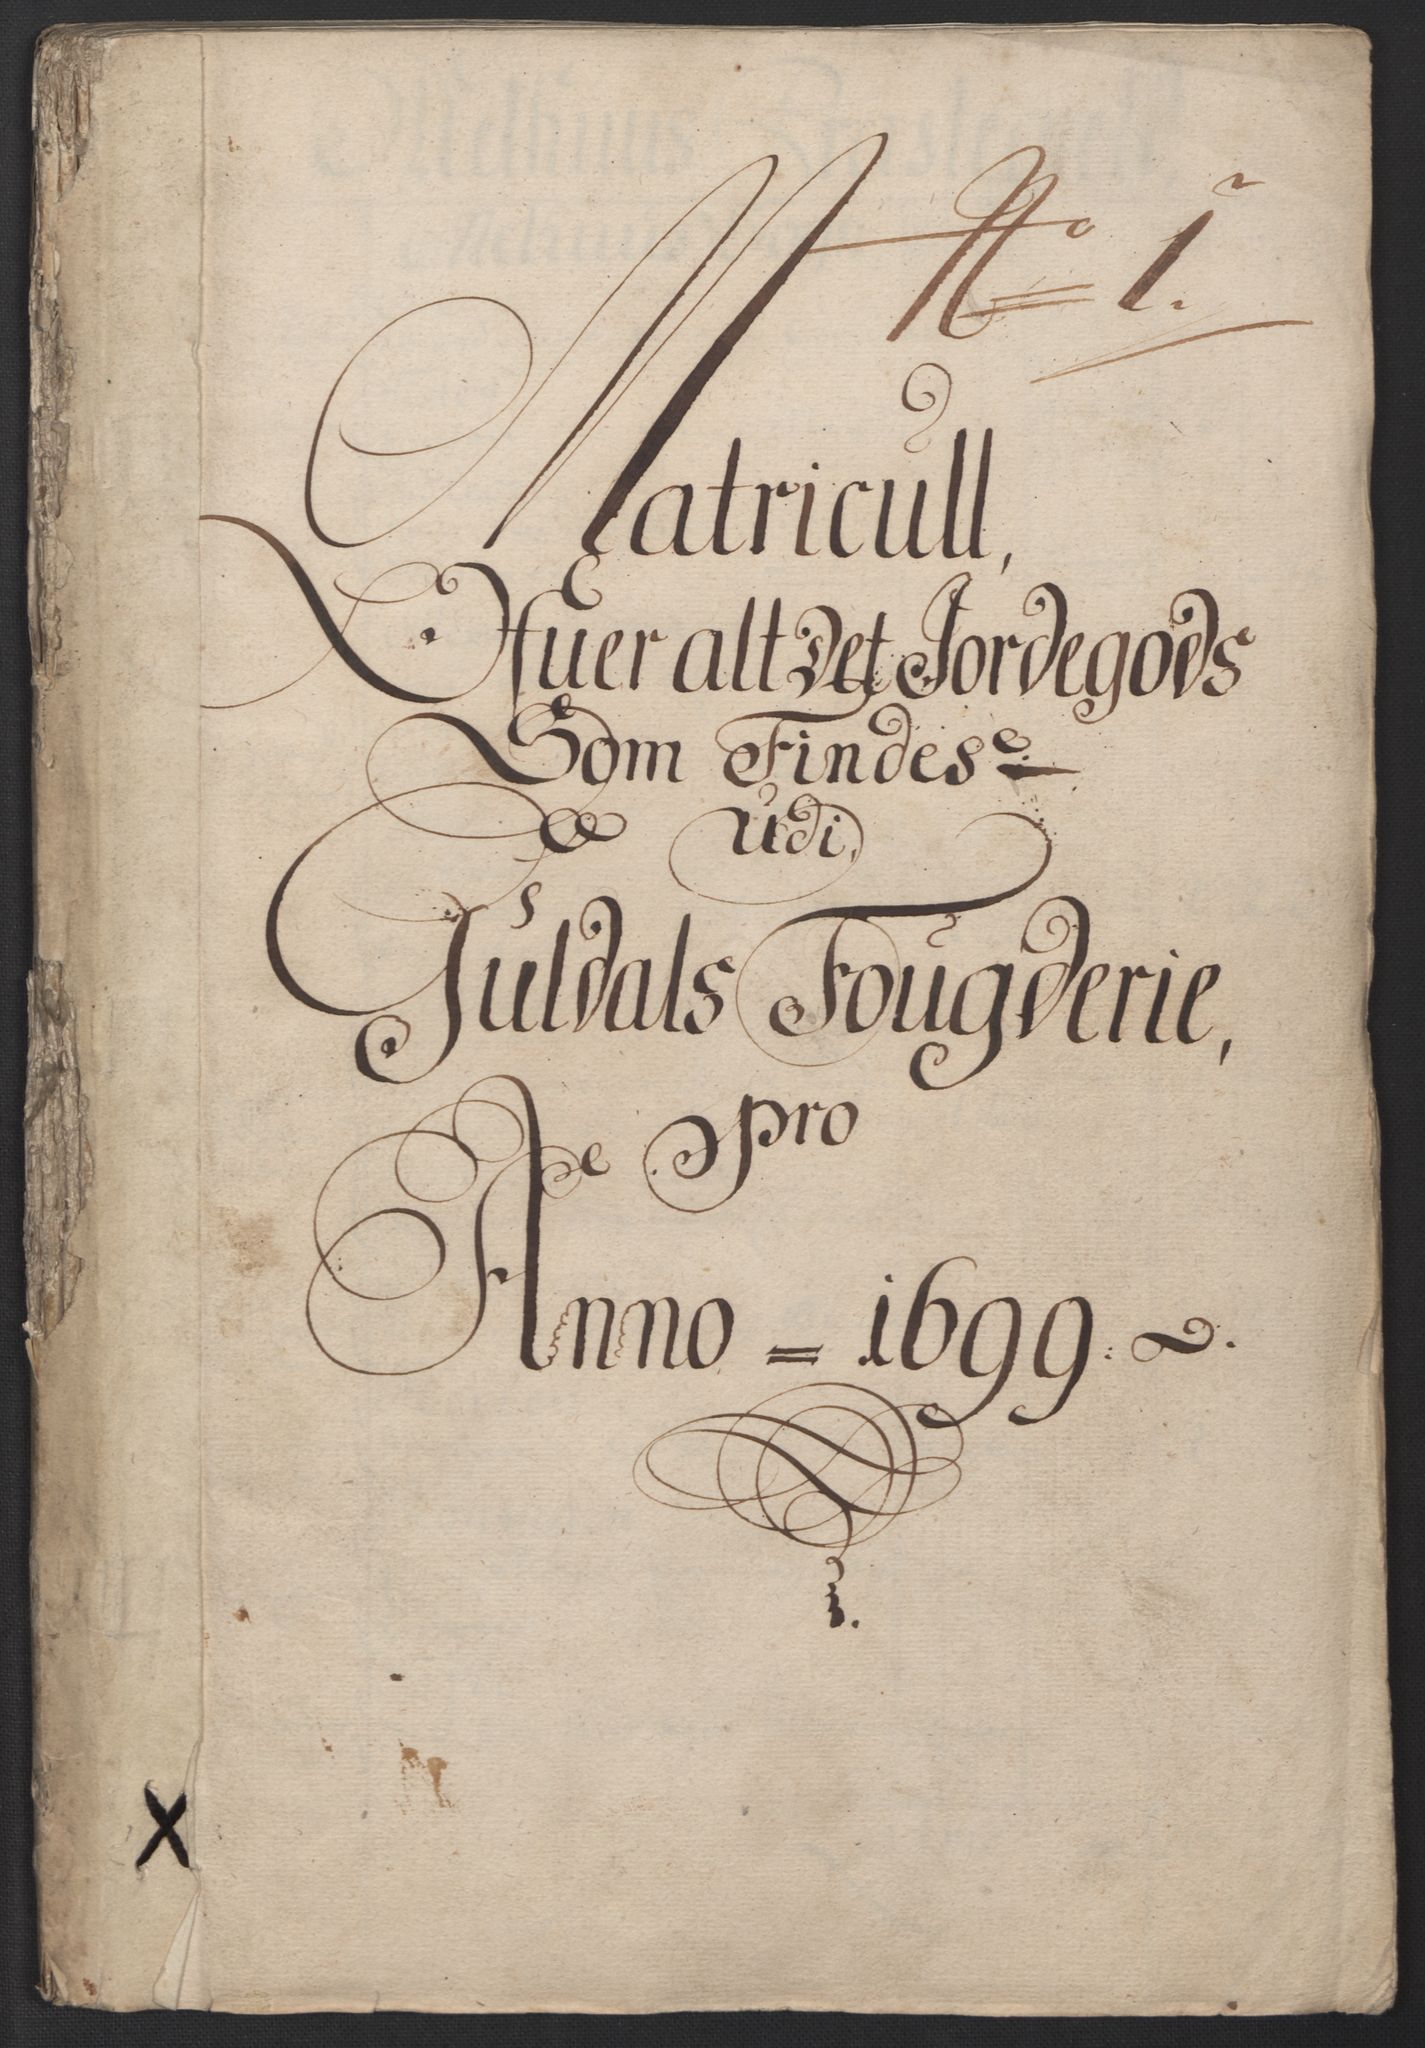 No 1.
Matricull,
Ofuer alt det Jordegods
Som Findes
udi,
Guldals Fougderie,
pro
Anno = 1699.
X